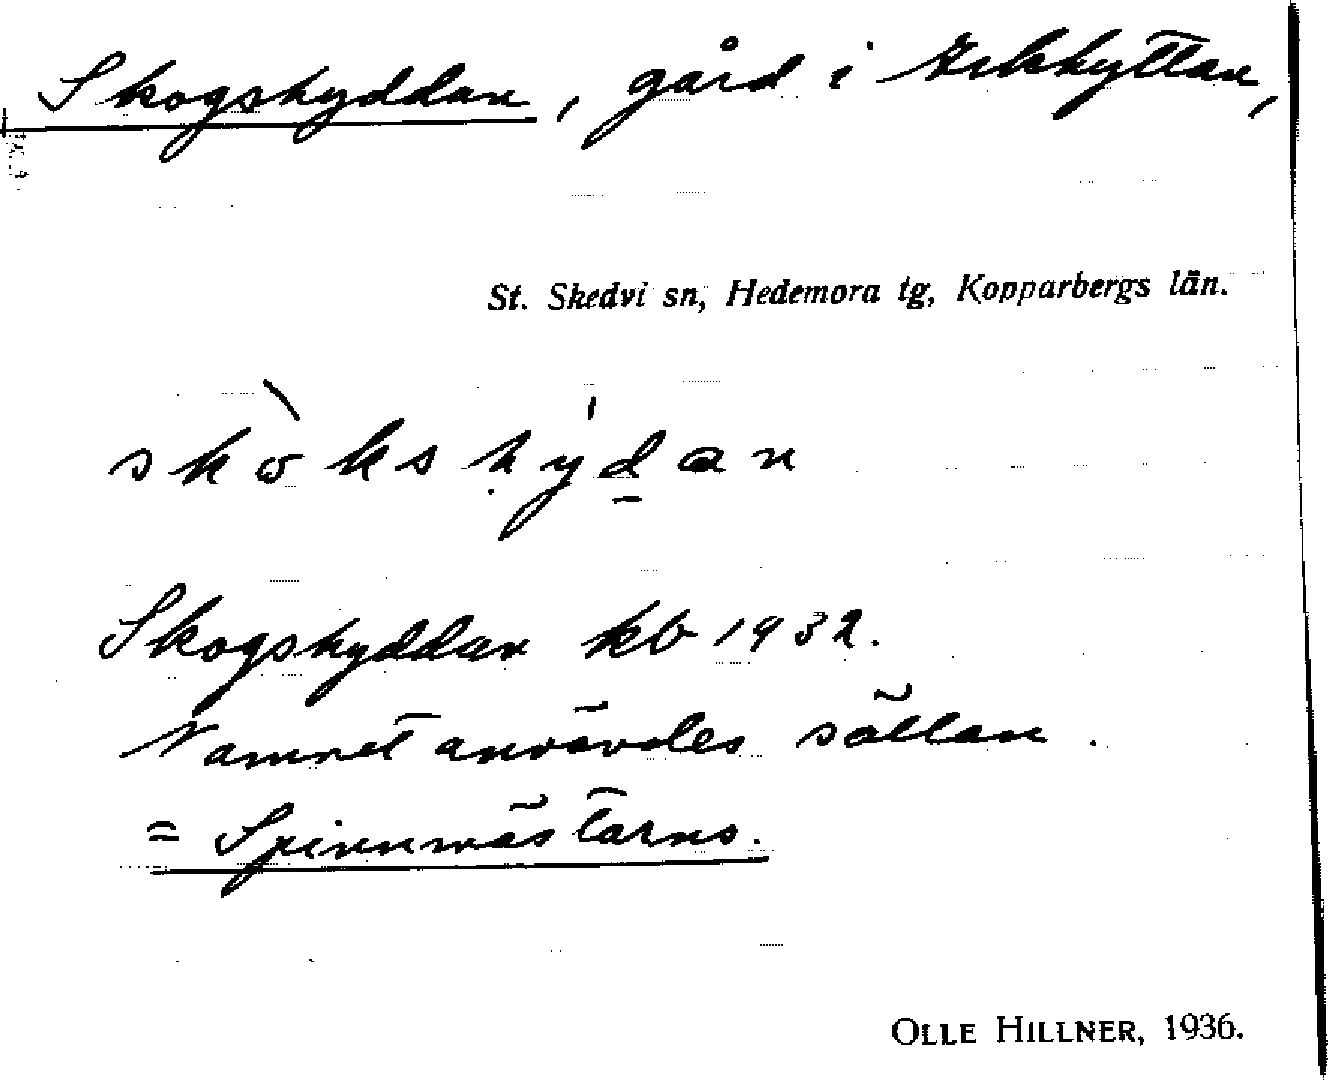 Skogshyddan, gård i Arkhyttan,
St. Skedvi sn, Hedemora tg, Kopparbergs län.
skòkshýd̲an
Skogshyddan kb 1932.
Namnet användes sällan.
= Spinnmästarns.
OLLE HILLNER, 1936.